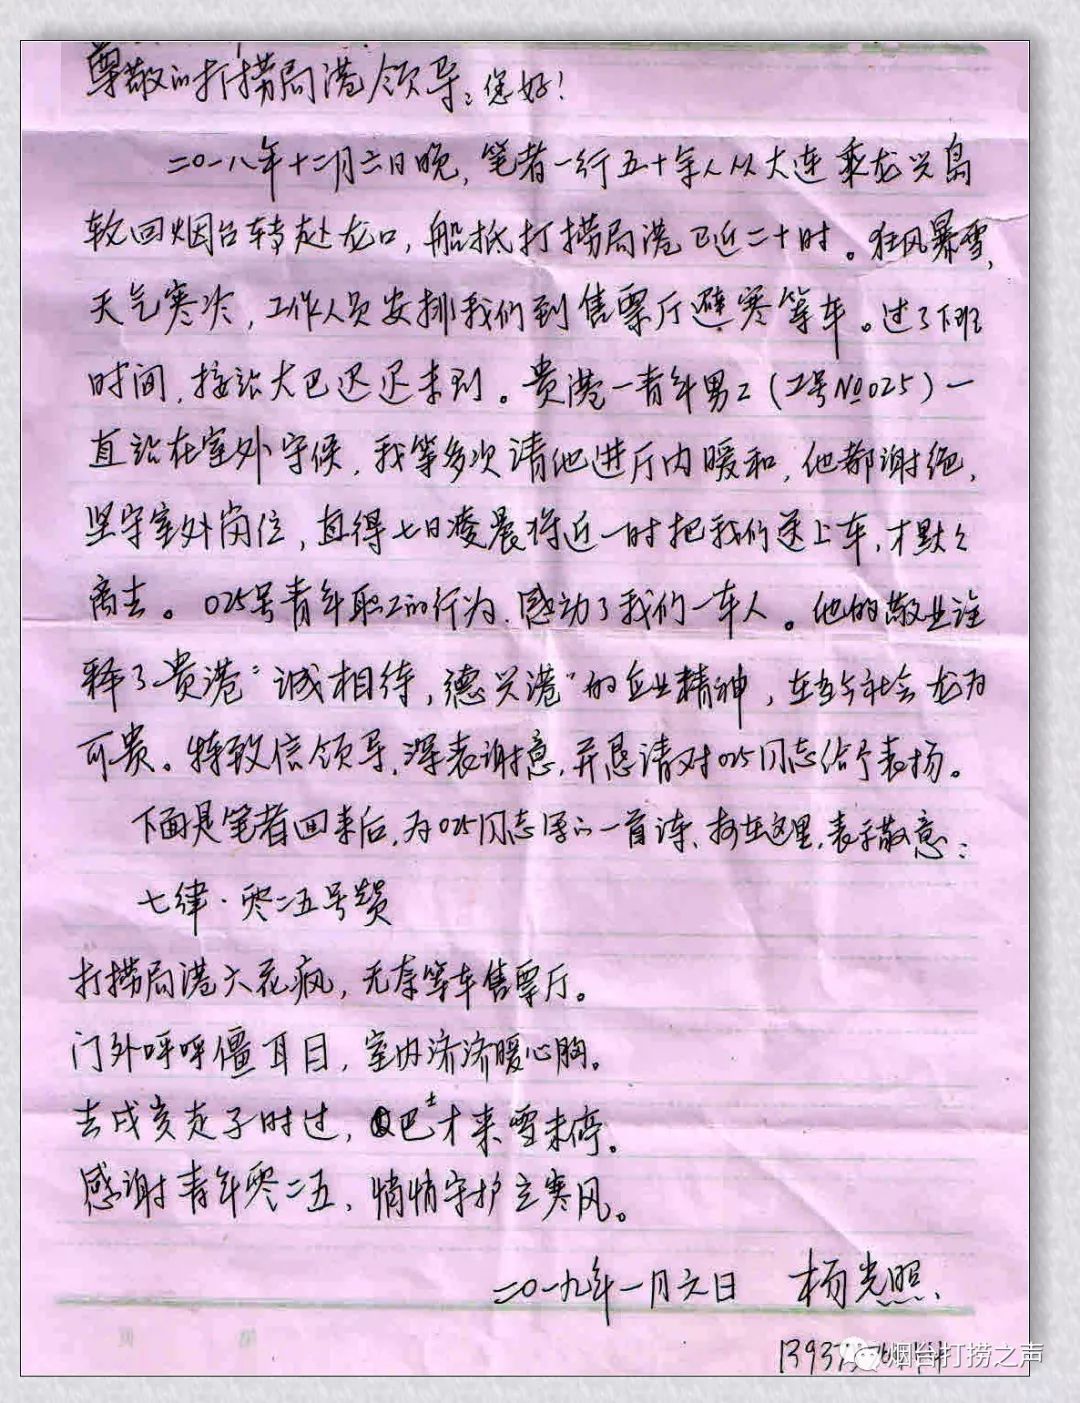 尊敬的打捞局港领导：您好！
二〇一八年十二月六日晚，笔者一行五十余人从大连乘龙兴岛
轮回烟台转赴龙口，船抵打捞局港已近二十时。狂风暴雪，
天气寒冷，工作人员安排我们到售票厅避寒等车。过了下班
时间，接站大巴迟迟未到。贵港一青年男工（工号№025）一
直站在室外守候，我等多次请他进厅内暖和，他都谢绝，
坚守室外岗位，直得七日凌晨将近一时把我们送上车，才默々
离去。025号青年职工的行为，感动了我们一车人。他的敬业诠
释了贵港“诚相待，德兴港”的企业精神，在当今社会尤为
可贵。特致信领导，深表谢意，并恳请对025同志给予表扬。
下面是笔者回来后，为025同志写的一首诗，抄在这里，表示敬意：
七律·零二五号赞
打捞局港六花疯，无奈等车售票厅。
门外呼呼僵耳目，室内济济暖心胸。
去戌亥走子时过，巴士才来雪未停。
感谢青年零二五，悄悄守护立寒风。
二〇一九年一月六日 杨光照
1393
烟台打捞之声